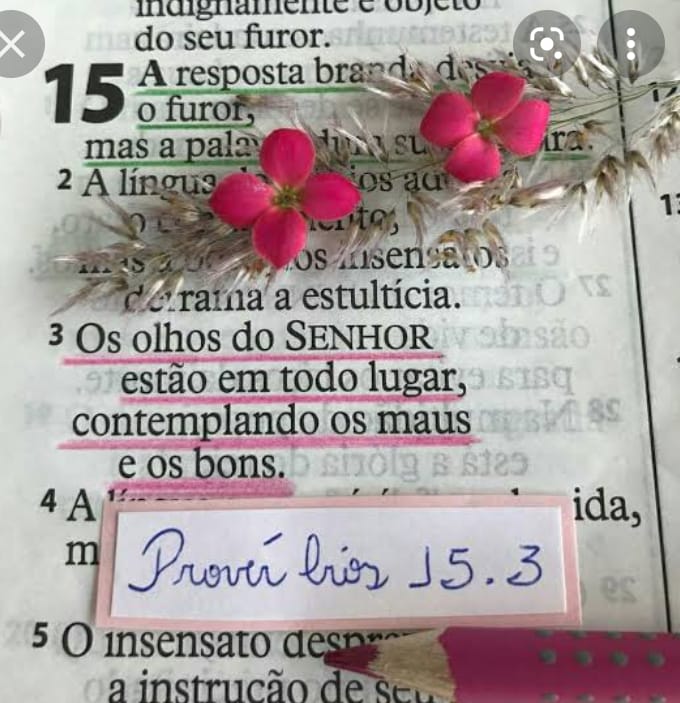 indignamente é objeto
do seu furor.
15 A resposta branda desvia
o furor,
mas a palavra dura suscita a ira.
2 A língua
os insensatos
derrama a estultícia.
3 Os olhos do SENHOR
estão em todo lugar,
contemplando os maus
e os bons.
4 A ida,
m
Provérbios 15.3
5 O insensato despreza
a instrução de seu